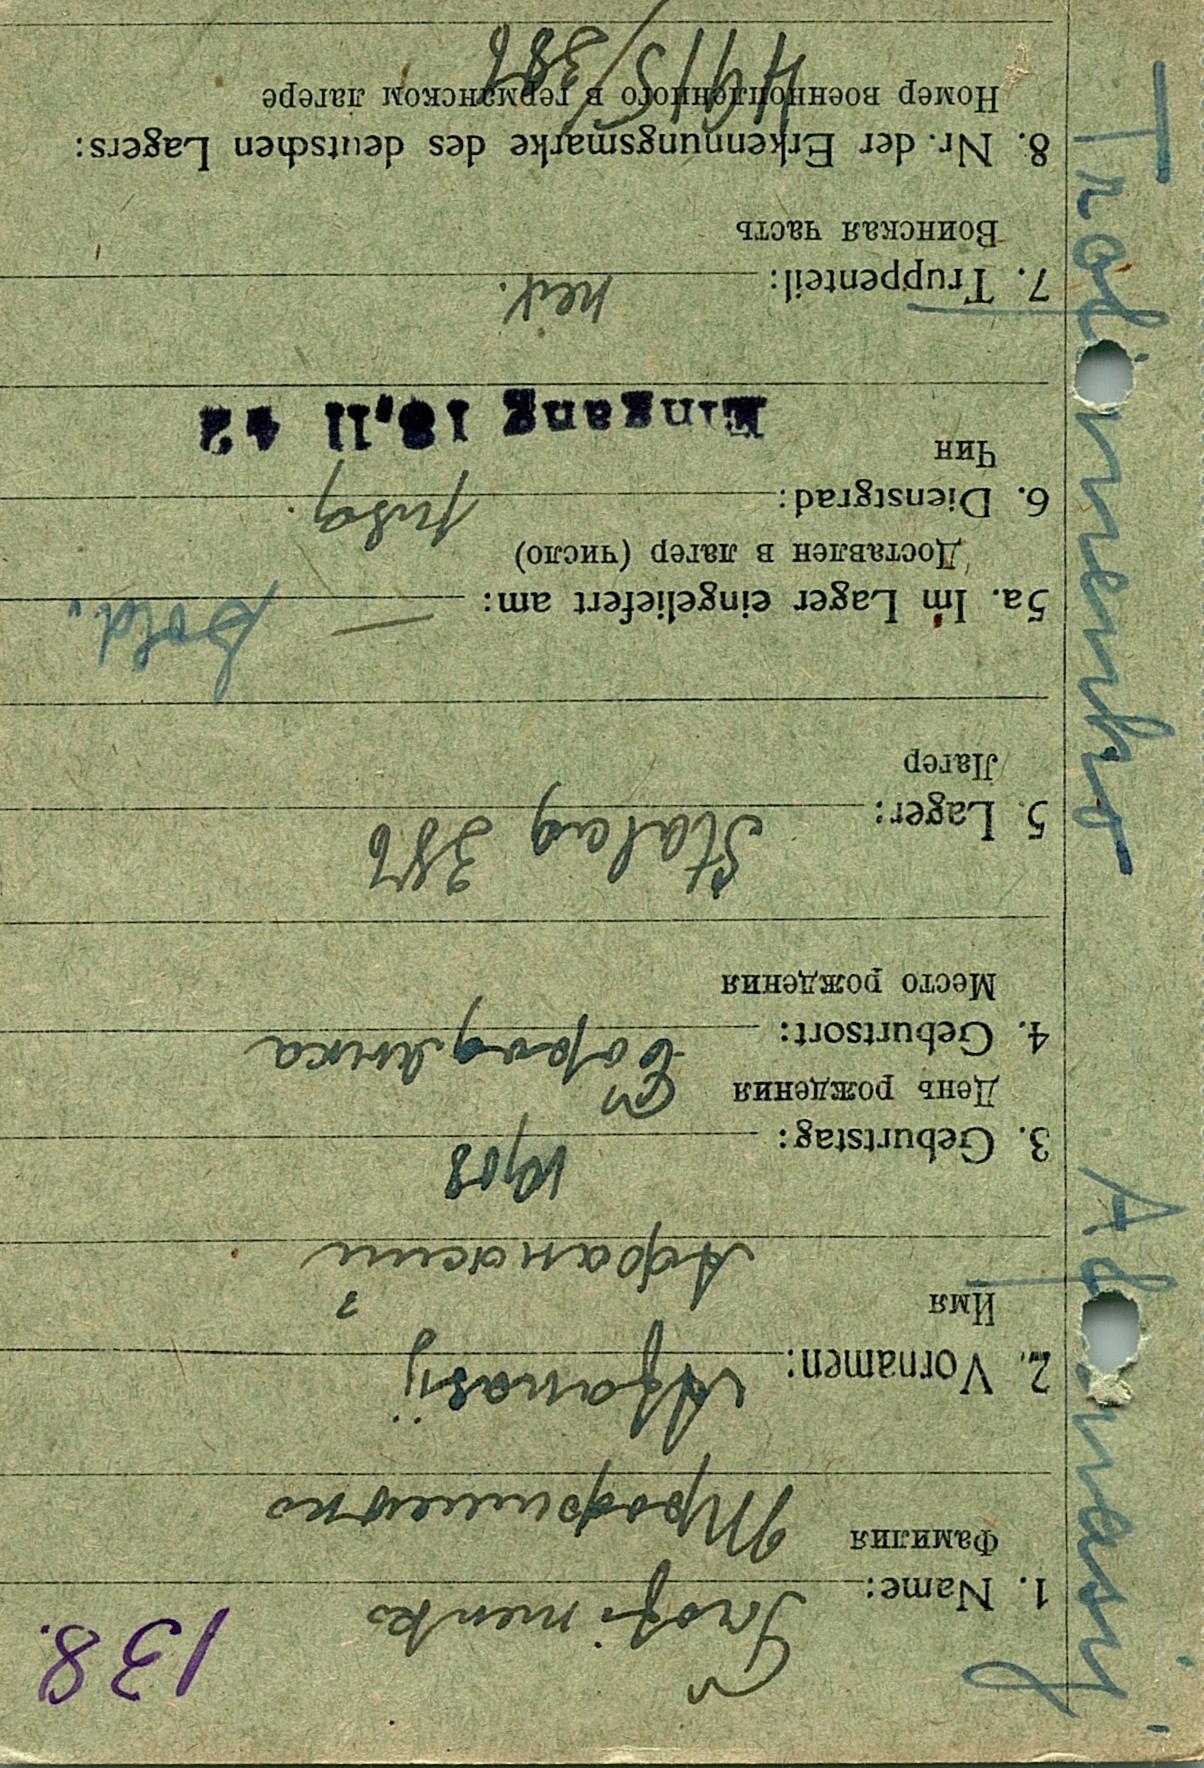 138.
Trofimenko
1. Name:
Фамилия
Трофименко
Afanasij
2. Vornamen:
Имя
Афанасий
1908
3. Geburtstag:
День рождения
4. Geburtsort:
Место рождения
Stalag 386
5. Lager:
Лагер
Sold.
5a. Im Lager eingeliefert am: —
Доставлен в лагер (число)
6. Dienstgrad:
Чин
Eingang 18.11 42
7. Truppenteil:
Воинская часть
8. Nr. der Erkennungsmarke des deutschen Lagers:
Номер военнопленного в германском лагере
386
Trofimenko Afanasij